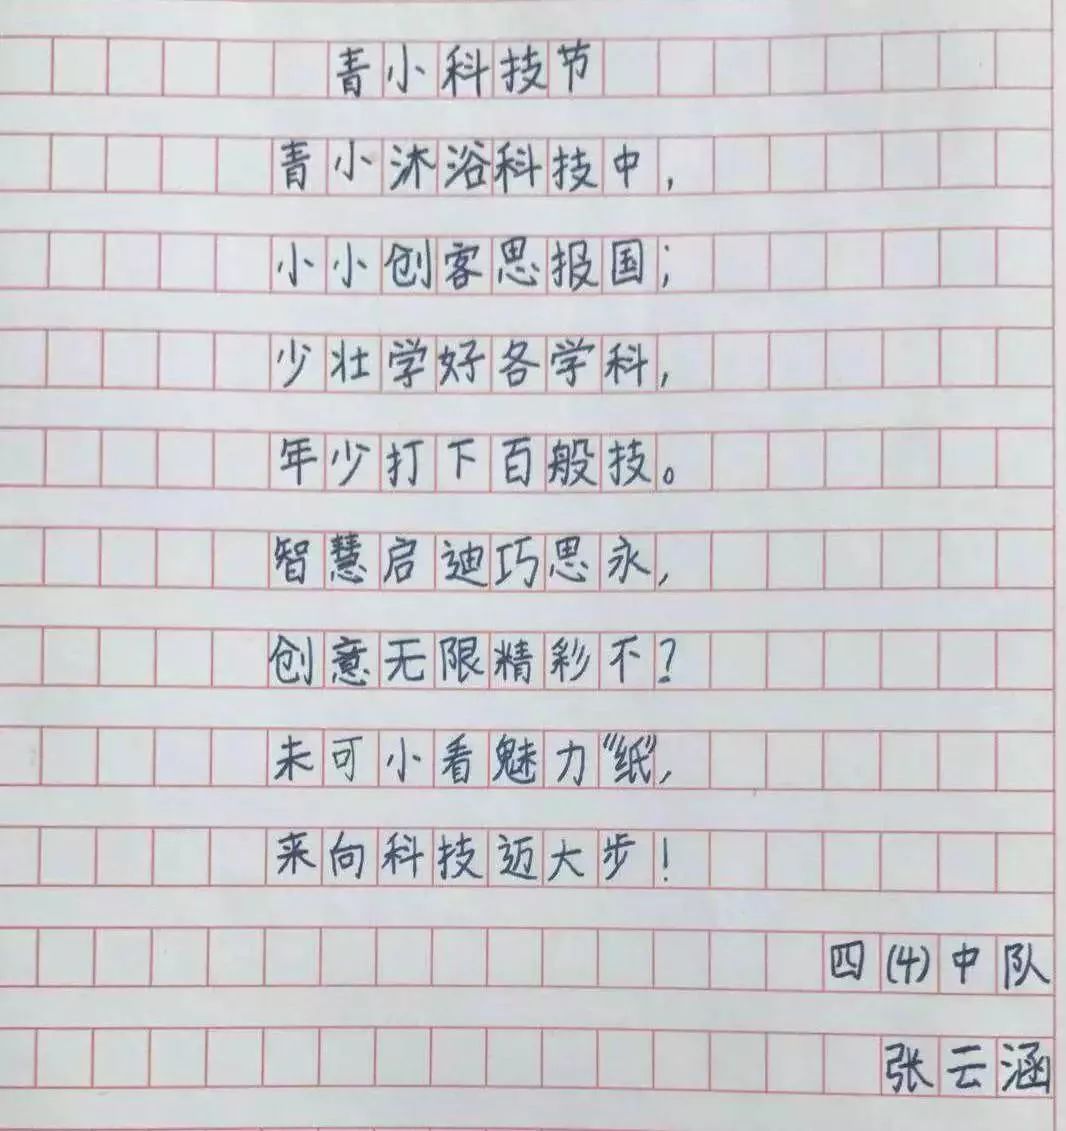 青小科技节
青小沐浴科技中，
小小创客思报国；
少壮学好各学科，
年少打下百般技。
智慧启迪巧思永，
创意无限精彩不？
未可小看魅力“纸”，
来向科技迈大步！
四(4)中队
张云涵